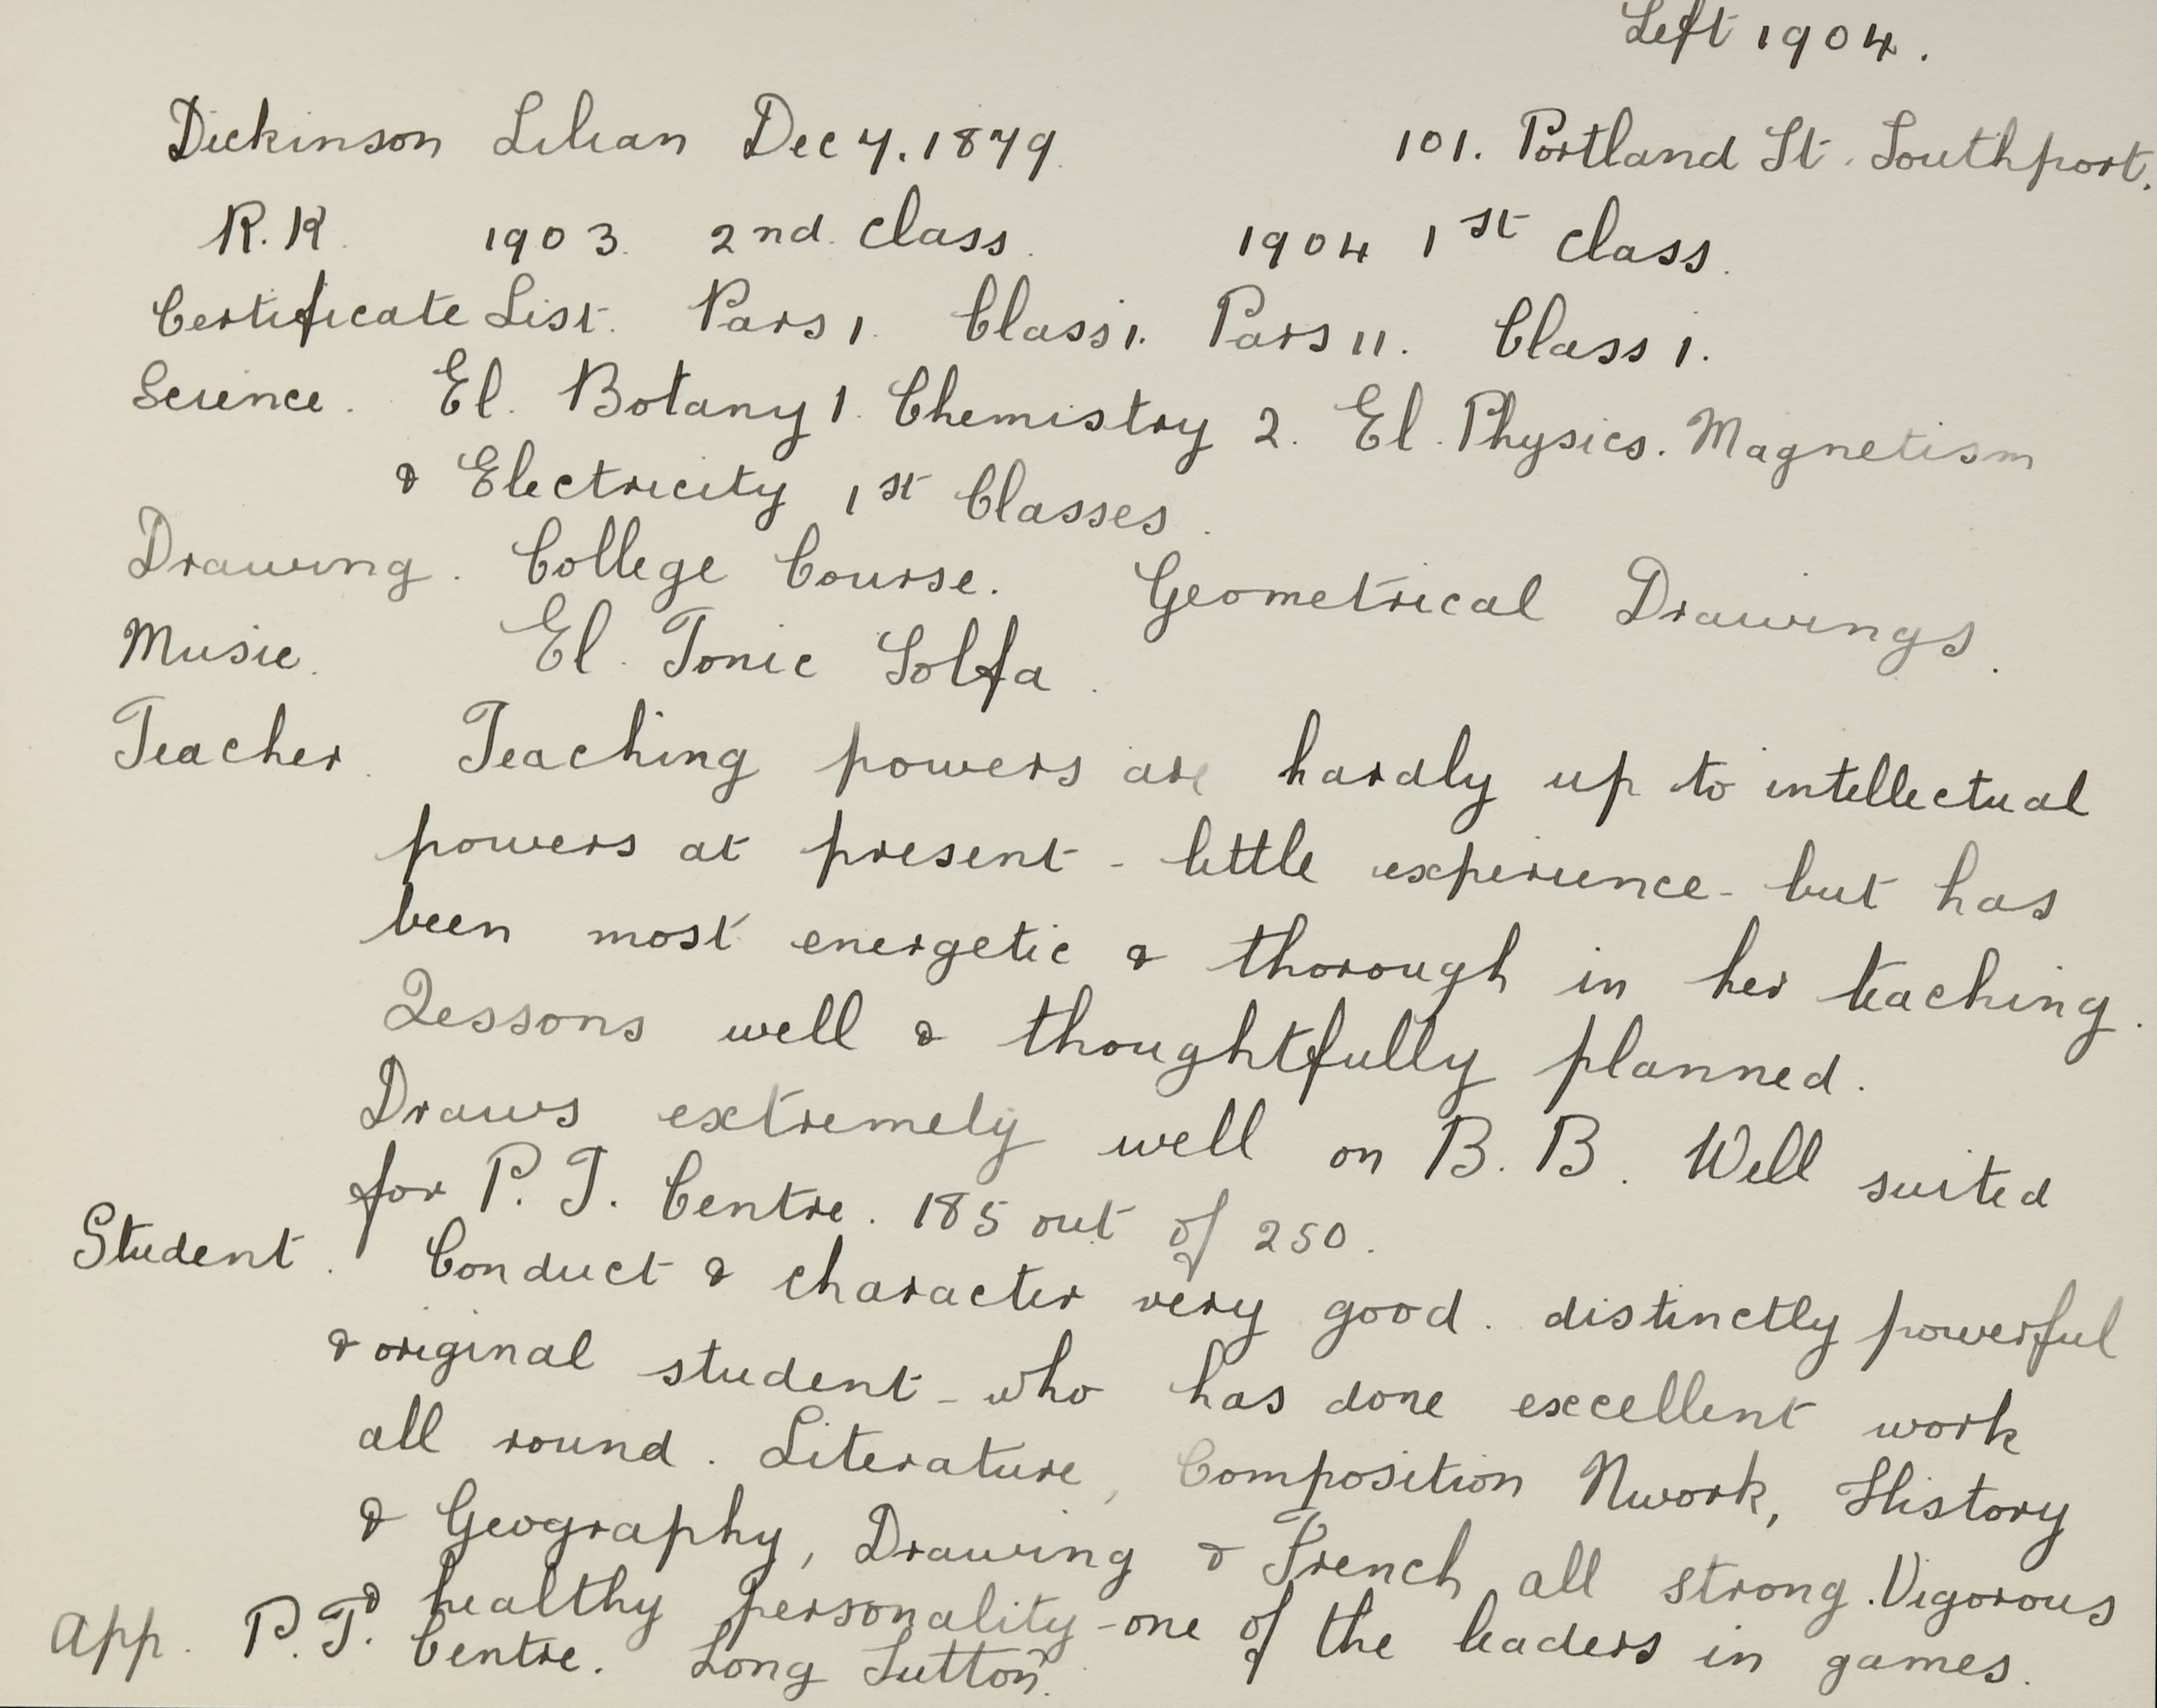 Left 1904.
Dickinson Lilian Dec 7. 1879. 101. Portland St. Southport.
R.K. 1903. 2nd. Class. 1904 1st Class.
Certificate List. Pars I. Class I. Pars II. Class I.
Science. El. Botany 1. Chemistry 2. El. Physics. Magnetism
& Electricity 1st Classes.
Drawing. College Course. Geometrical Drawings.
Music. El. Tonic Solfa.
Teacher. Teaching powers are hardly up to intellectual
powers at present - little experience - but has
been most energetic & thorough in her teaching.
Lessons well & thoughtfully planned.
Draws extremely well on B.B. Well suited
for P.T. Centre. 185 out of 250.
Student. Conduct & character very good. distinctly powerful
& original student - who has done excellent work
all round. Literature, Composition Nwork, History
& Geography, Drawing & French all strong. Vigorous
& healthy personality - one of the leaders in games.
App. P.T. Centre. Long Sutton.